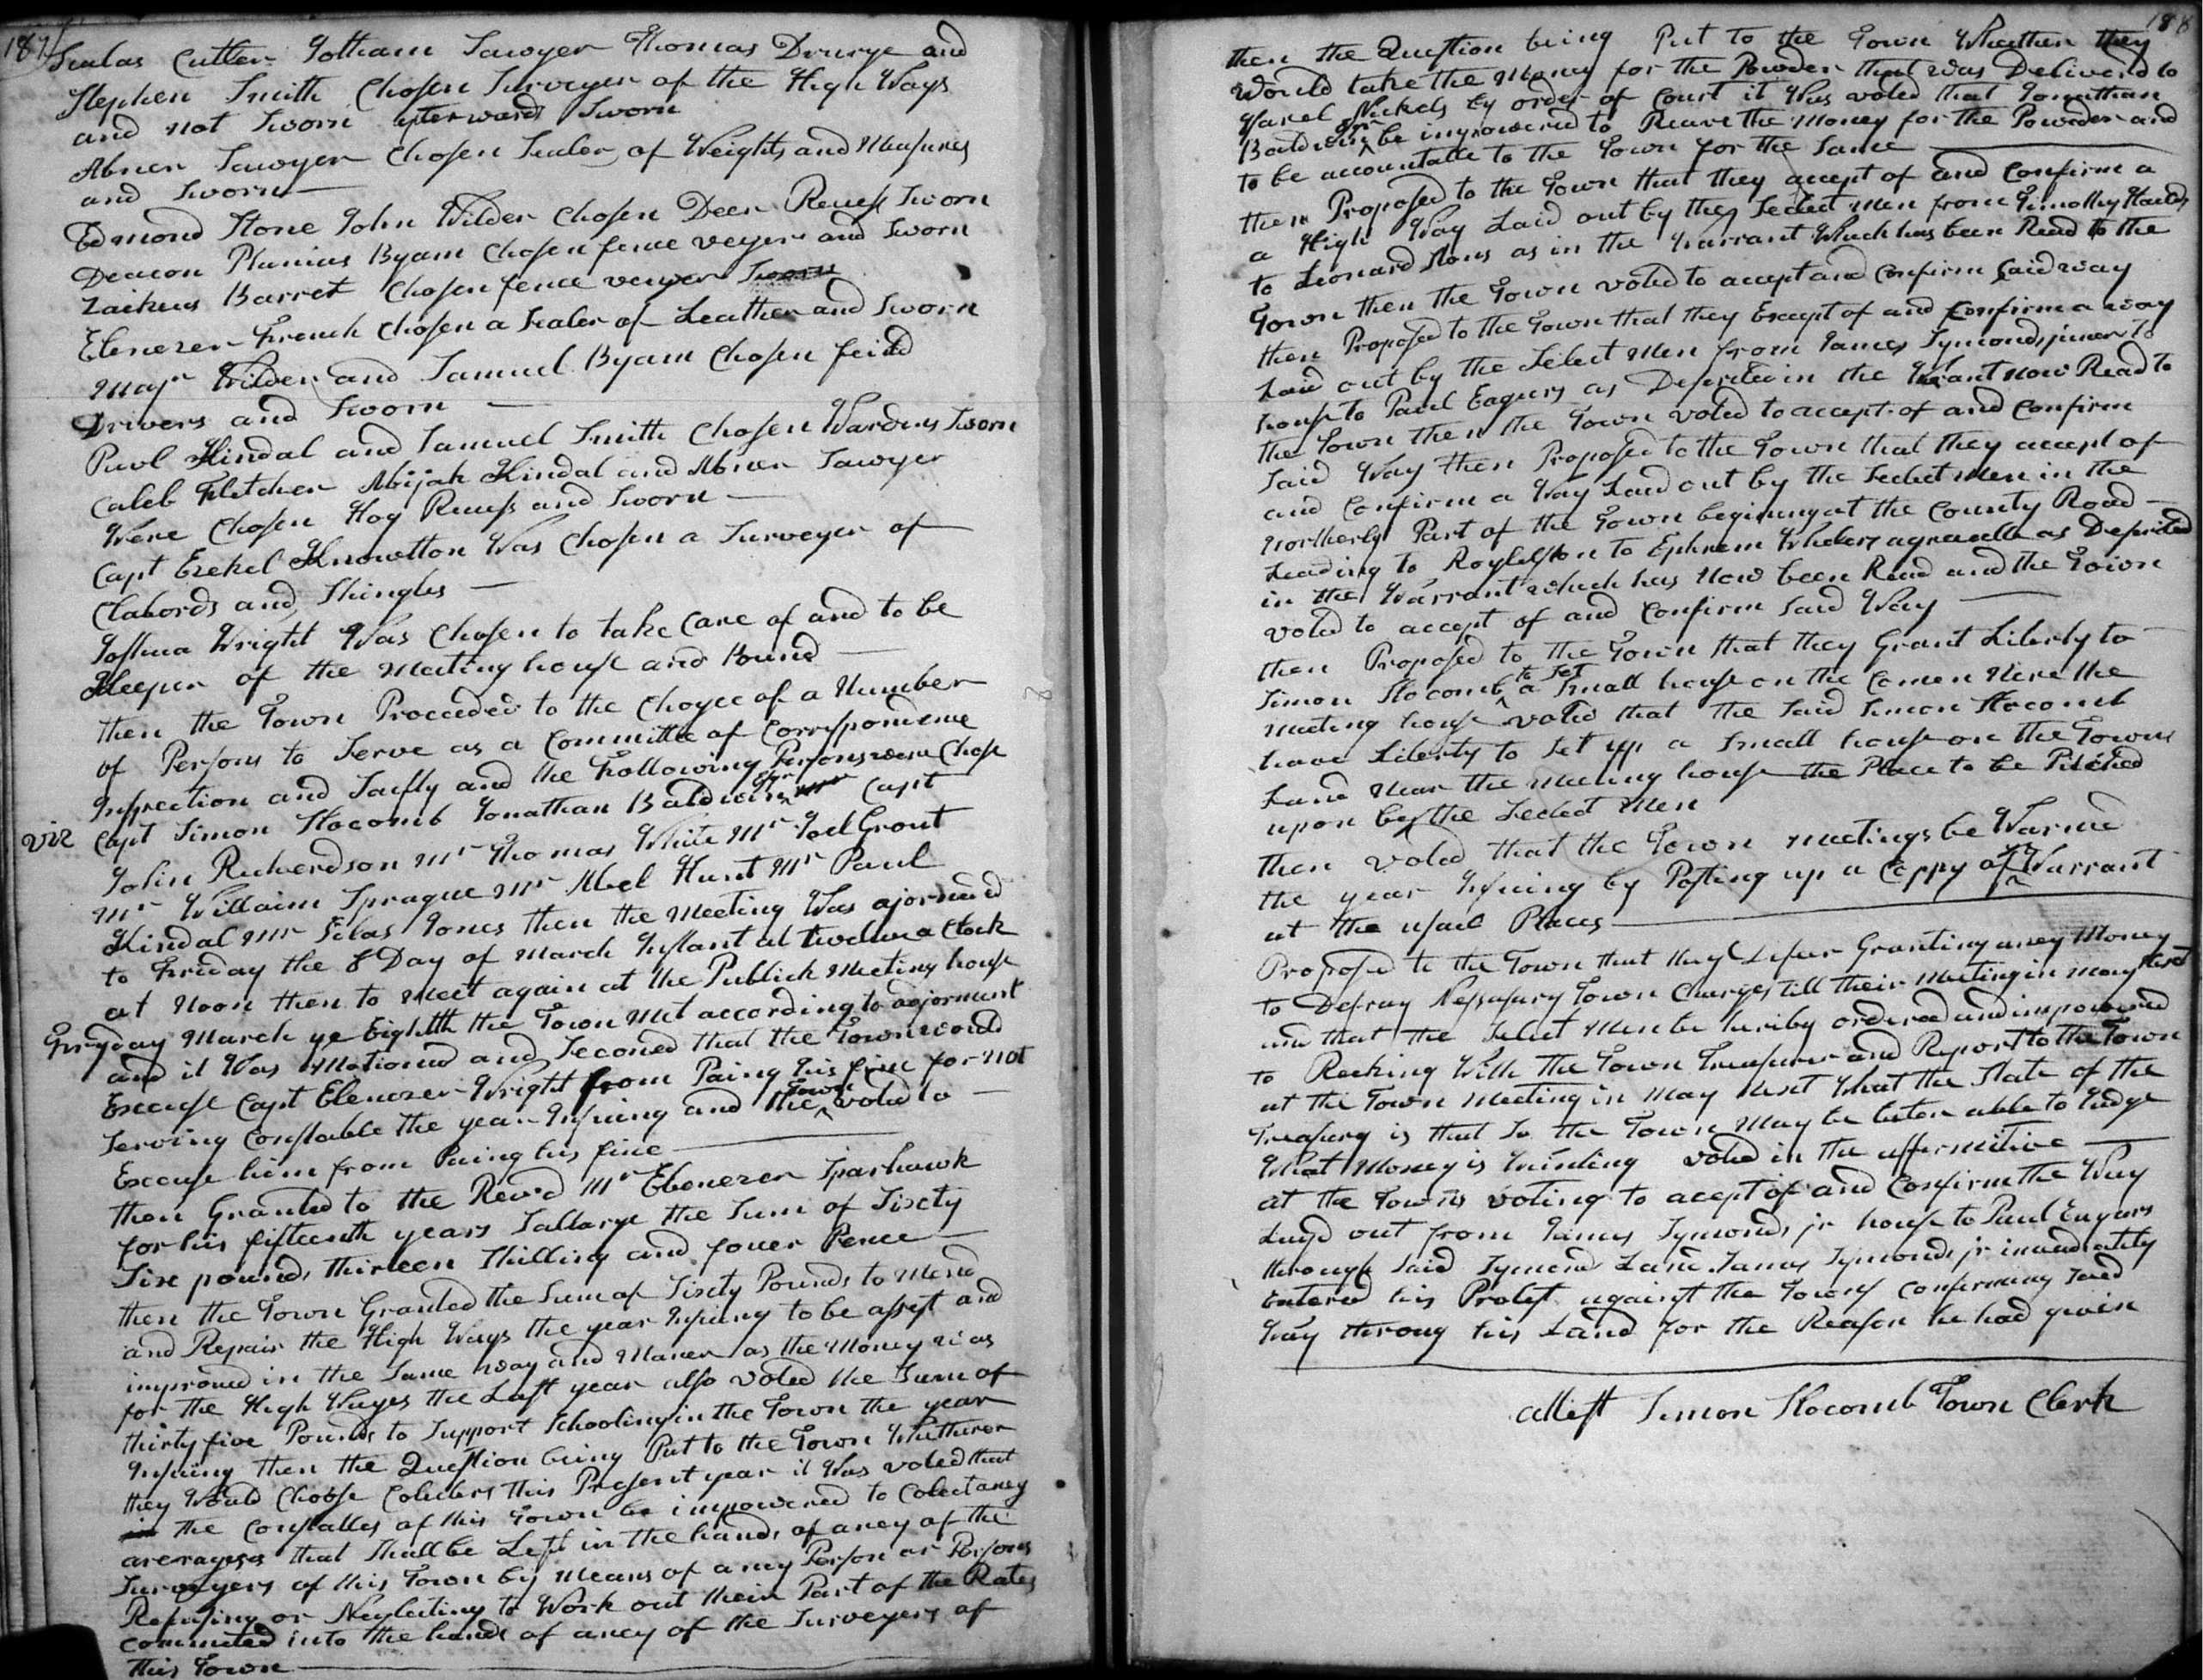 187
Sealas Cutler Jotham Sawyer Thomas Drurye and
Stephen Smith Chosen Surveyer of the High Ways
and not Sworn afterwards Sworn
Abner Sawyer Chosen Sealer of Weights and Measures
and Sworn
Edmond Stone John Wilder Chosen Deer Reuefs Sworn
Deacon Byam Chosen fence veyer and Sworn
Zackeus Barret Chosen fence veiyer Sworn
Ebenezer French Chosen a Sealer of Leather and Sworn
Majr Wilder and Samuel Byam Chosen feild
Drivers and Sworn
Pawl Kindal and Samuel Smith Chosen Wardens Sworn
Caleb Fletcher Abijah Kindal and Abner Sawyer
Were Chosen Hog Reuefs and Sworn
Capt Ezekel Knowlton Was Chosen a Surveyer of
Clabords and Shingles
Joshua Wright Was Chosen to take Care of and to be
Keeper of the Meeting house and Pound
then the Town Proceded to the Choyce of a Number
of Persons to Serve as a Committe of Corrspondence
Inspection and Saifty and the Following Persons were Chose
viz Capt Simon Slocomb Jonathan Baldwin Esqr Capt
John Richerdson Mr Thomas White Mr Joel Grout
Mr Willaim Sprague Mr Abel Hunt Mr Paul
Kindal Mr Silas Jones then the Meeting Was ajorned
to Friday the 8 Day of March Instant at twelve a Clock
at Noon then to Meet again at the Publick Meeting house
Fryday March ye Eighth the Town Met according to adjorment
and it Was Motioned and Seconed that the Town would
Excuse Capt Ebenezer Wright from Paing his fine for not
Serving Constable the year Insuing and the Town voted to
Excuse him from Paing his fine
then Granted to the Revd Mr Ebenezer Sparhawk
for his fifteenth years Sallarye the Sum of Sixty
Six pounds thirteen Shilling and fouer Pence
then the Town Granted the Sum of Sixty Pounds to Mend
and Repair the High Ways the year Insuing to be assest and
improued in the Same way and Maner as the Money was
for the High Wayes the Last year also voted the Sum of
thirty five Pounds to Support Schooling in the Town the year
Insuing then the Question being Put to the Town Whether
they Would Choose Colecters this Present year it Was voted that
the Constalles of this Town be impowered to Colect aney
averages that Shall be Left in the hands of aney of the
Surveyers of this Town by Means of aney Person or Persons
Refusing or Neglecting to Work out their Part of the Rates
Commited into the hands of aney of the Surveyers of
this Town
188
then the Question being Put to the Town Whether they
Would take the Money for the Powder that was Deliverd to
Nickols by order of Court it Was voted that Jonathan
Baldwin Esqr be impowered to Receve the Money for the Powder and
to be accountable to the Town for the Same
then Proposed to the Town that they accept of and Confirm a
a High Way Laid out by the Select Men from Timothy
to Leonard Stons as in the Warrant Which has been Read to the
Town then the Town voted to accept and Confirm Said way
then Proposed to the Town that they Except of and Confirm a way
Laid out by the Select Men from James Symonds juner to
house to Paul Eagers as Descrited in the Warant now Read to
the Town then the Town voted to accept of and Confirm
Said Way then Proposed to the Town that they accept of
and Confirm a Way Laid out by the Select Men in the
Northerly Part of the Town begining at the County Road
Leading to Roylelston to Ephrem Whelers agreeable as Descrited
in the Warrant which has Now been Read and the Town
voted to accept of and Confirm Said Way
then Proposed to the Town that they Grant Liberty to
Simon Slocomb to Set a Small house on the Comen Nere the
Meeting house voted that the Said Simon Slocomb
have Liberty to Set up a Small house on the Towns
Land Near the Meeting house the Place to be Pitched
upon by the Select Men
then voted that the Town Meetings be Warned
the year Insuing by Posting up a Coppy of ye Warrant
at the usual Places
Proposed to the Town that they Defer Granting aney Money
to Defray Nessasary Town Charges till their Meeting in May Next
and that the Select Men be hereby ordered and impowered
to Recking With the Town Treasurer and Report to the Town
at the Town Meeting in May Next What the State of the
Treasury is that So the Town May be beter able to Judge
What Money is Wanting voted in the affermitive
at the Towns voting to acept of and Confirm the Way
Layd out from James Symonds jr house to Paul Eagers
through Said Symond Land James Symonds jr immediately
Entered his Protest against the Towns Confirming Said
Way throug his Land for the Reason he had given
Attest Simon Slocomb Town Clerk